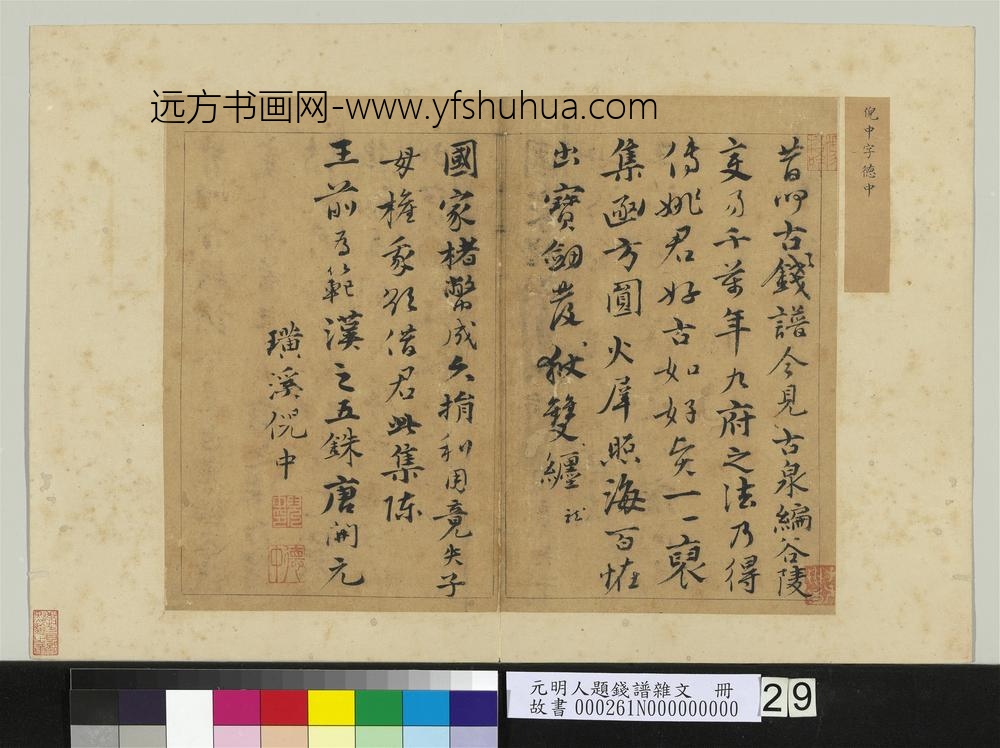 远方书画网-www.yfshuhua.com
倪中字德中
昔聞古錢譜今見古泉編谷陵
變易千萬年九府之法乃得
傳姚君好古如好一一裒
集方圓火犀照海百怪
出寶劍發獄雙纏龍
國家楮幣成久捐利用竟失子
母權我欲借君此集陳
王前為範漢之五銖唐開元
璜溪倪中
德中
元明人題錢譜雜文 冊
故書 000261N000000000
29